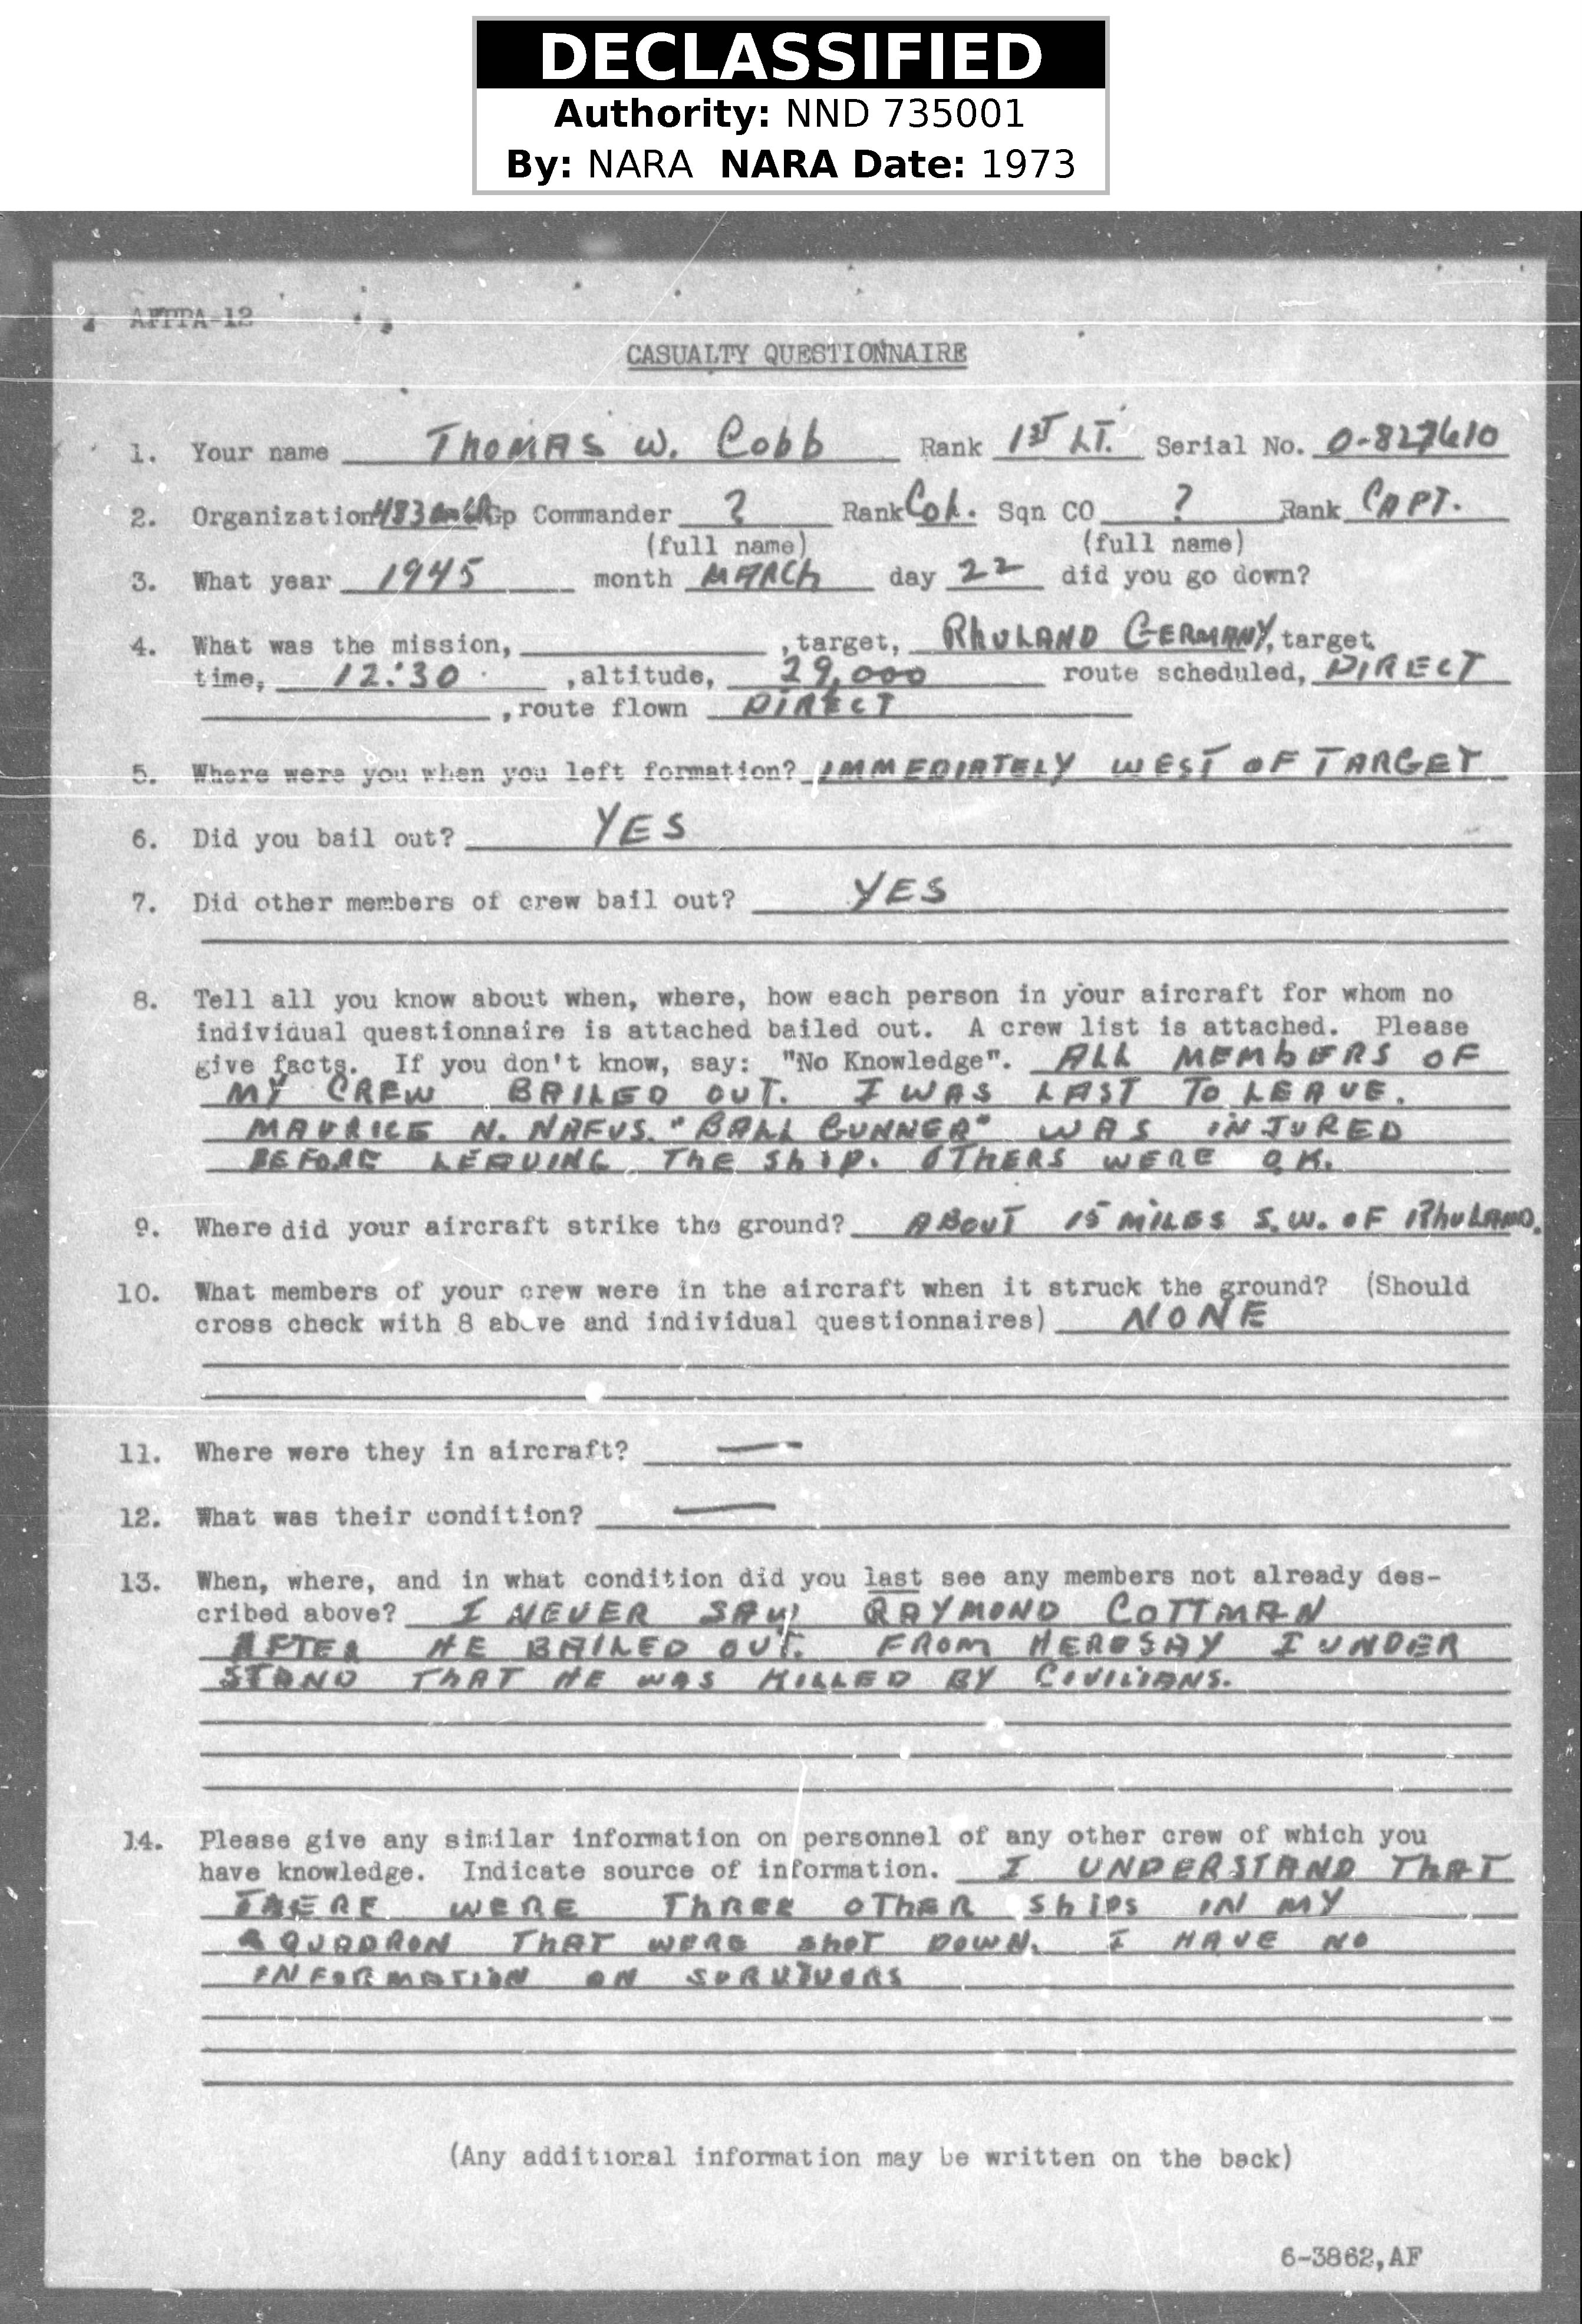 DECLASSIFIED
Authority: NND 735001
By: NARA NARA Date: 1973
AFPPA-12
CASUALTY QUESTIONNAIRE
1. Your name THOMAS W. Cobb Rank 1ST LT. Serial No. O-827610
2. Organization 483 Gp Commander ? Rank COL. Sqn CO ? Rank CAPT.
(full name) (full name)
3. What year 1945 month MARCH day 22 did you go down?
4. What was the mission, , target, RHULAND GERMANY, target
time, 12:30 , altitude, 29,000 route scheduled, DIRECT
, route flown DIRECT
5. Where were you when you left formation? IMMEDIATELY WEST OF TARGET
6. Did you bail out? YES
7. Did other members of crew bail out? YES
8. Tell all you know about when, where, how each person in your aircraft for whom no
individual questionnaire is attached bailed out. A crew list is attached. Please
give facts. If you don't know, say: "No Knowledge". ALL MEMBERS OF
MY CREW BAILED OUT. I WAS LAST TO LEAVE.
MAURICE N. NAFUS. "BALL GUNNER" WAS INJURED
BEFORE LEAVING THE SHIP. OTHERS WERE O.K.
9. Where did your aircraft strike the ground? ABOUT 15 MILES S.W. OF RHULAND.
10. What members of your crew were in the aircraft when it struck the ground? (Should
cross check with 8 above and individual questionnaires) NONE
11. Where were they in aircraft? —
12. What was their condition? —
13. When, where, and in what condition did you last see any members not already des-
cribed above? I NEVER SAW RAYMOND COTTMAN
AFTER HE BAILED OUT. FROM HERESAY I UNDER
STAND THAT HE WAS KILLED BY CIVILIANS.
14. Please give any similar information on personnel of any other crew of which you
have knowledge. Indicate source of information. I UNDERSTAND THAT
THERE WERE THREE OTHER SHIPS IN MY
SQUADRON THAT WERE SHOT DOWN. I HAVE NO
INFORMATION ON SURVIVORS
(Any additional information may be written on the back)
6-3862,AF